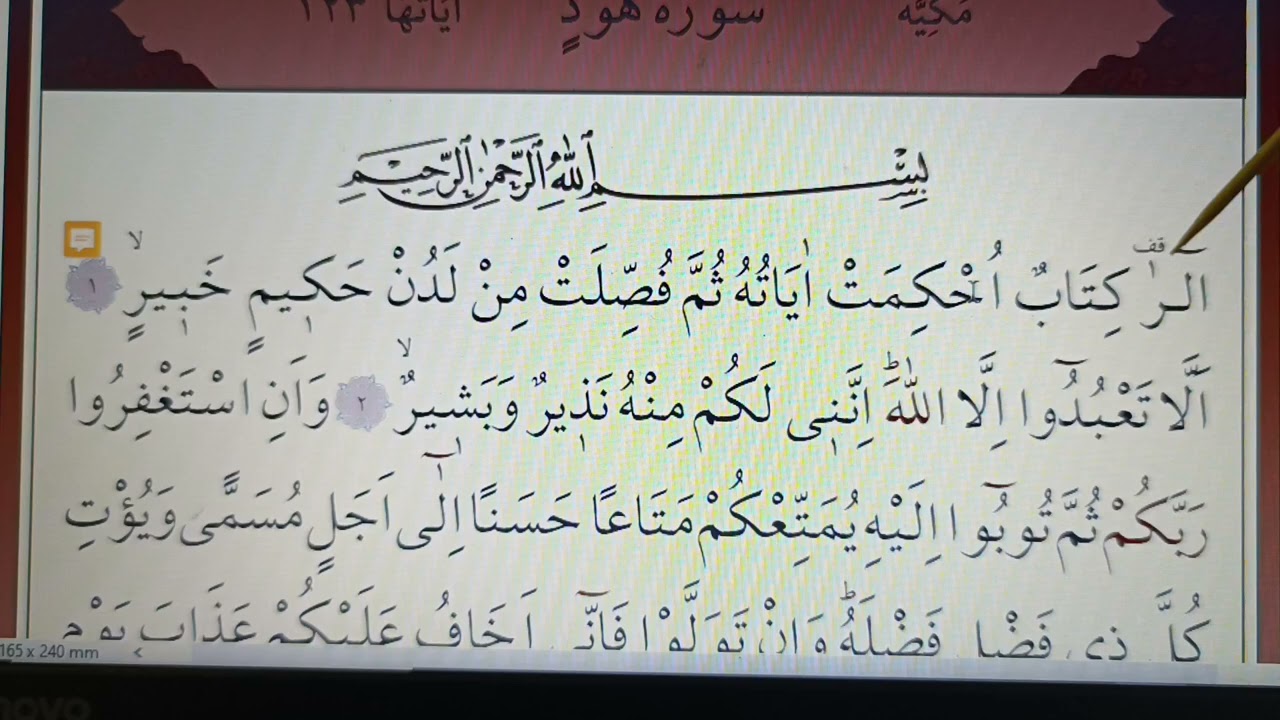 مَكِّيَّه سورة هودٍ اٰيَاتُهَا ١٢٣
بِسْمِ ٱللَّهِ ٱلرَّحْمٰنِ ٱلرَّحِيمِ
الٓرٰ قف كِتَابٌ اُحْكِمَتْ اٰيَاتُهُ ثُمَّ فُصِّلَتْ مِنْ لَدُنْ حَكٖيمٍ خَبٖيرٍ لا ١
اَلَّا تَعْبُدُٓوا اِلَّا اللّٰهَ ط اِنَّنٖى لَكُمْ مِنْهُ نَذٖيرٌ وَبَشٖيرٌ لا ٢ وَاَنِ اسْتَغْفِرُوا
رَبَّكُمْ ثُمَّ تُوبُٓوا اِلَيْهِ يُمَتِّعْكُمْ مَتَاعًا حَسَنًا اِلٰٓى اَجَلٍ مُسَمًّى وَيُؤْتِ
كُلَّ ذٖى فَضْلٍ فَضْلَهُ ط وَاِنْ تَوَلَّوْا فَاِنّٖٓى اَخَافُ عَلَيْكُمْ عَذَابَ يَوْمٍ
165 x 240 mm
novo